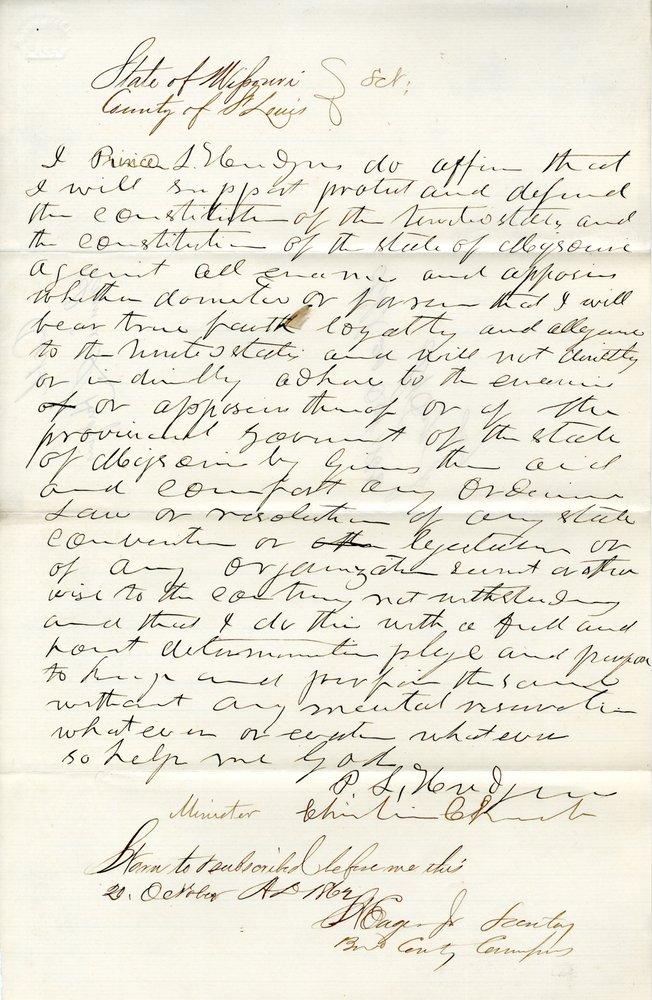 State of Missouri } Sct;
County of St Louis
I Prince L. Hudgins do affirm that
I will support protect and defend
the constitution of the United states and
the constitution of the state of Myssouri
against all enamies and apposers
whether domestic or foren that I will
bear true faith loyalty and allegance
to the United states and will not directly
or indirectly adhere to the enemies
of or apposers thereof or of the
provisional Goverment of the state
of Myssouri by giving them aid
and comfort any Ordinance
Law or resolution of any state
convention or legislature or
of any organization secret or other
wise to the contrary not withstanding
and that I do this with a full and
honest determination plege and purpose
to keep and perform the same
without any mental reservation
whatever or evation whatever
so help me God
P. L. Hudgins
Minister Christian Church
Sworn to & subscribed before me this
20. October AD 1862
Eager Jr
Bord County